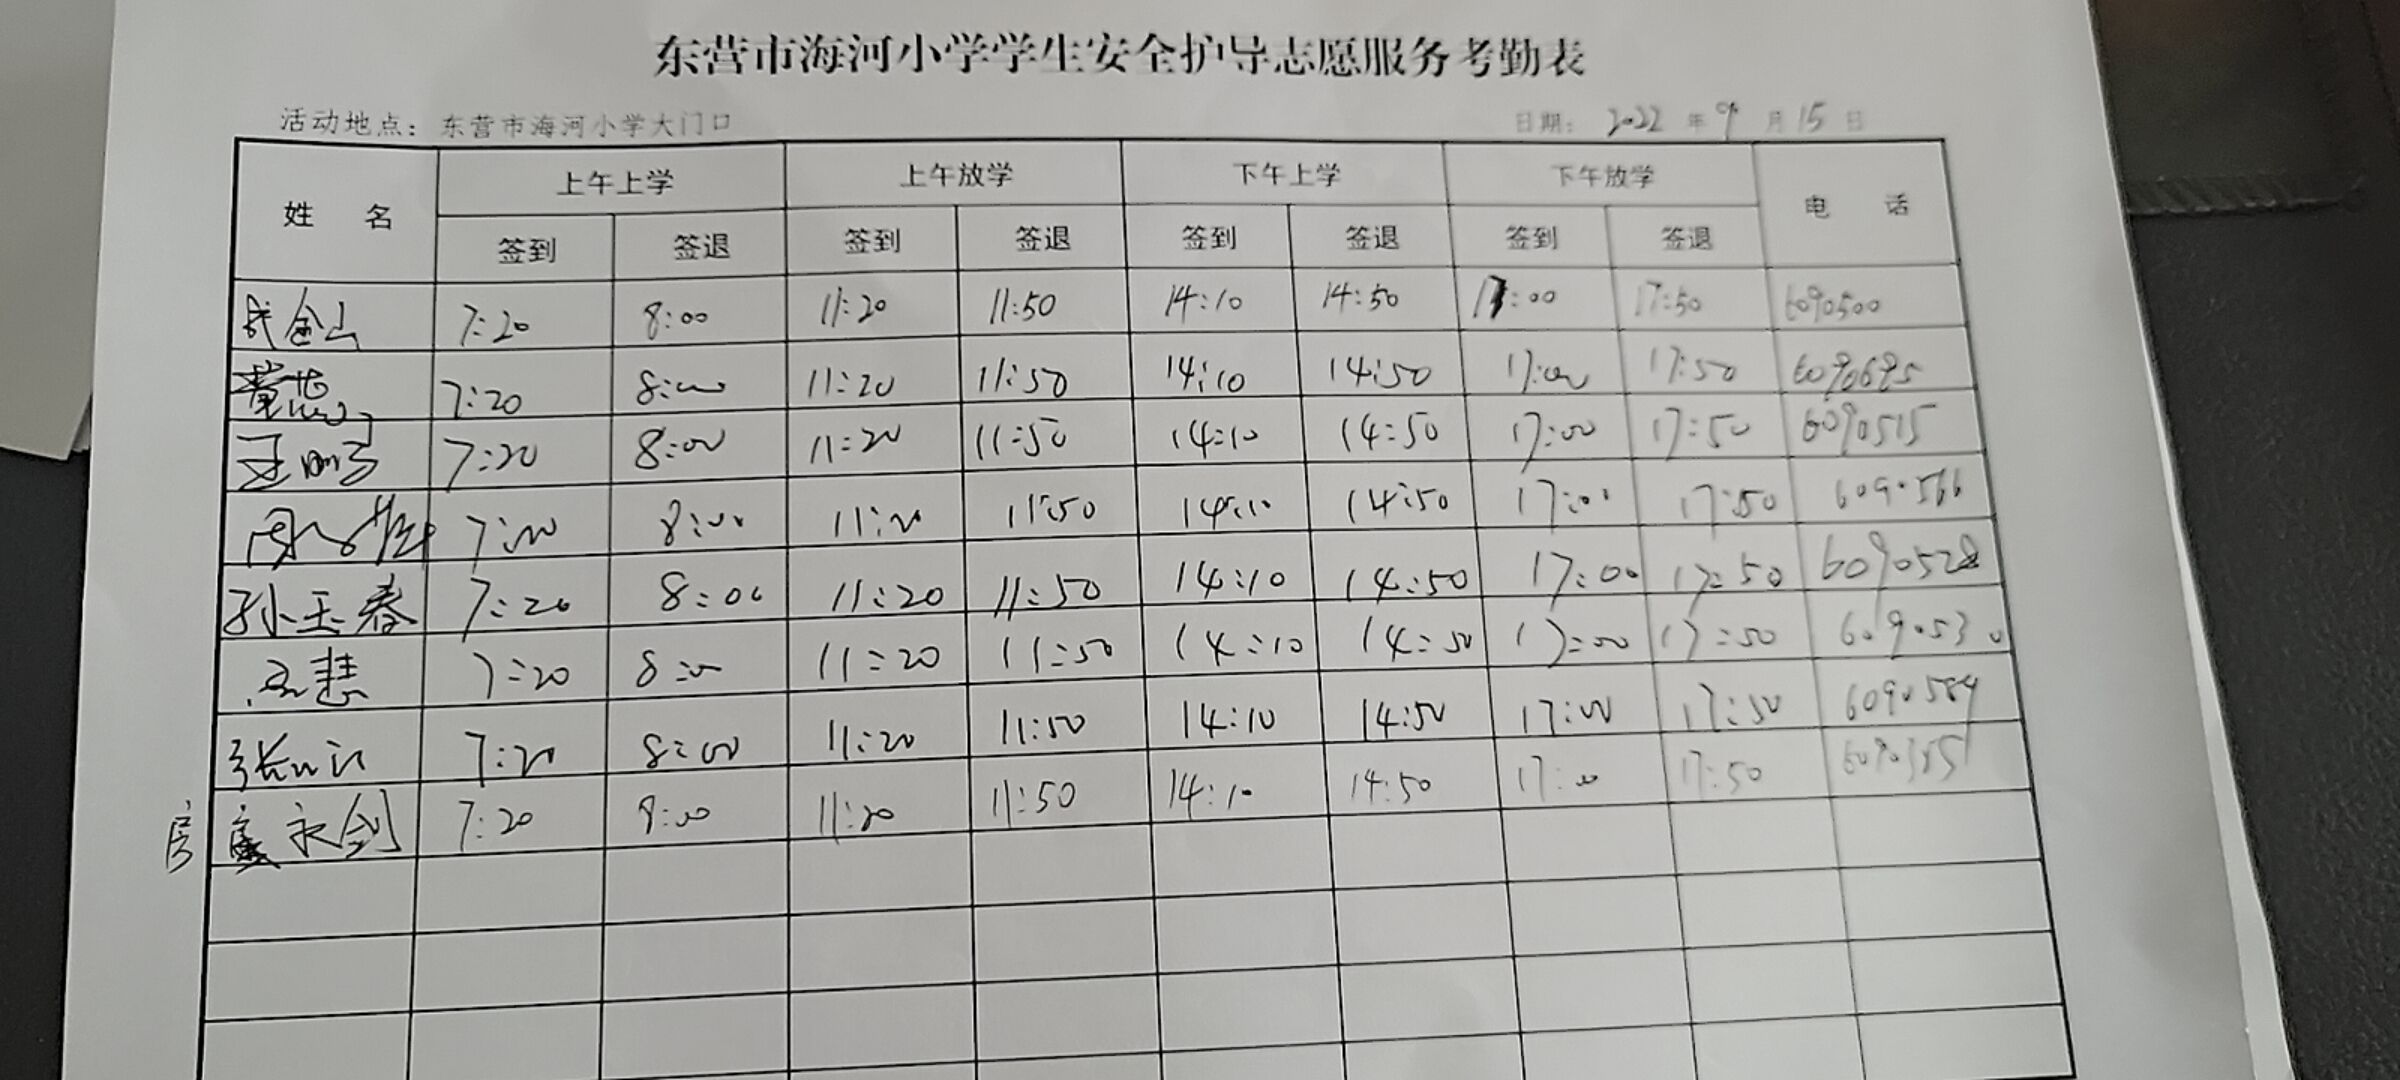 东营市海河小学学生安全护导志愿服务考勤表
活动地点：东营市海河小学大门口 日期：2022年9月15日
姓 名 上午上学 上午放学 下午上学 下午放学 电 话
签到 签退 签到 签退 签到 签退 签到 签退
成金山 7:20 8:00 11:20 11:50 14:10 14:50 17:00 17:50 6090500
7:20 8:00 11:20 11:50 14:10 14:50 17:00 17:50 6090695
7:20 8:00 11:20 11:50 14:10 14:50 17:00 17:50 6090515
7:20 8:00 11:20 11:50 14:10 14:50 17:00 17:50 6090566
孙玉春 7:20 8:00 11:20 11:50 14:10 14:50 17:00 17:50 6090528
慧 7:20 8:00 11:20 11:50 14:10 14:50 17:00 17:50 6090530
张 7:20 8:00 11:20 11:50 14:10 14:50 17:00 17:50 6090584
房 永剑 7:20 8:00 11:20 11:50 14:10 14:50 17:00 17:50